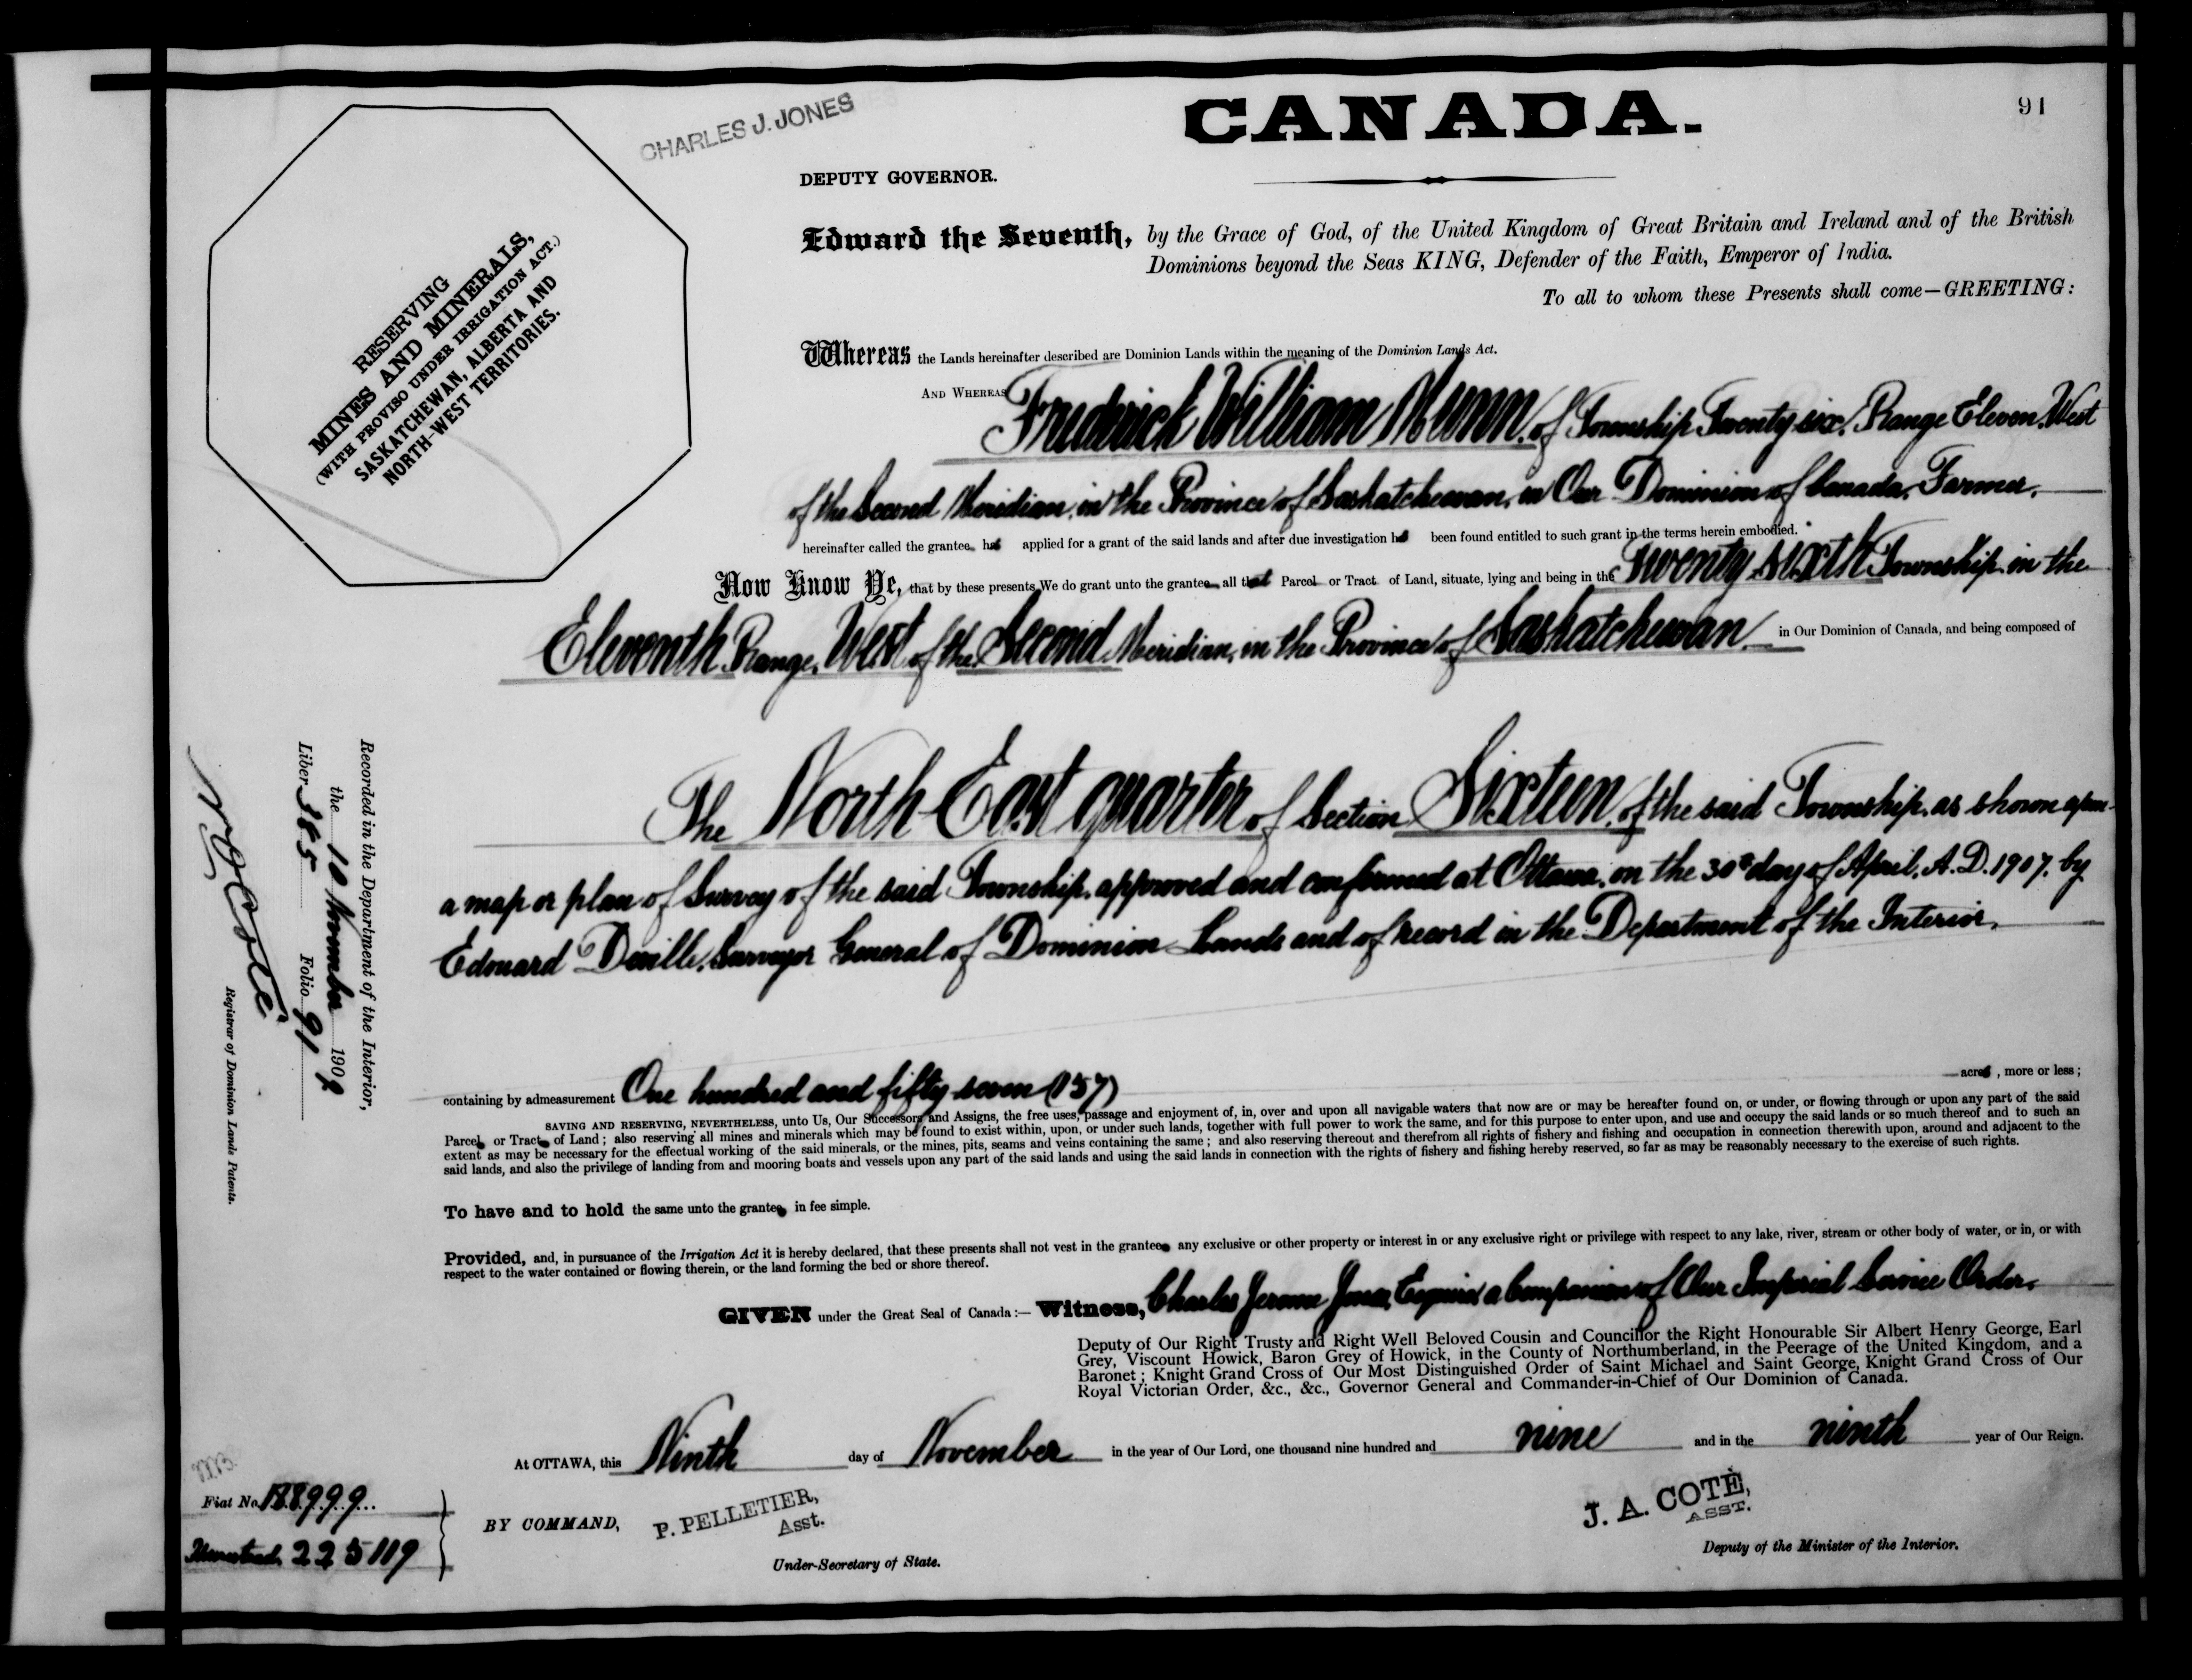 91
CHARLES J. JONES
CANADA.
DEPUTY GOVERNOR.
RESERVING
MINES AND MINERALS,
(WITH PROVISO UNDER IRRIGATION ACT.)
SASKATCHEWAN, ALBERTA AND
NORTH-WEST TERRITORIES.
Edward the Seventh, by the Grace of God, of the United Kingdom of Great Britain and Ireland and of the British
Dominions beyond the Seas KING, Defender of the Faith, Emperor of India.
To all to whom these Presents shall come—GREETING:
Whereas the Lands hereinafter described are Dominion Lands within the meaning of the Dominion Lands Act.
AND WHEREAS Frederick William Munn, of Township Twenty six, Range Eleven, West
of the Second Meridian, in the Province of Saskatchewan, in Our Dominion of Canada, Farmer,
hereinafter called the grantee, has applied for a grant of the said lands and after due investigation has been found entitled to such grant in the terms herein embodied.
Now Know Ye, that by these presents We do grant unto the grantee all that Parcel or Tract of Land, situate, lying and being in the Twenty-sixth Township, in the
Eleventh Range, West of the Second Meridian, in the Province of Saskatchewan in Our Dominion of Canada, and being composed of
The North East quarter of Section Sixteen, of the said Township, as shown upon
a map or plan of Survey of the said Township, approved and confirmed at Ottawa, on the 30th day of April, A.D. 1907, by
Edouard Deville, Surveyor General of Dominion Lands and of record in the Department of the Interior,
containing by admeasurement One hundred and fifty seven (157) acres, more or less;
SAVING AND RESERVING, NEVERTHELESS, unto Us, Our Successors and Assigns, the free uses, passage and enjoyment of, in, over and upon all navigable waters that now are or may be hereafter found on, or under, or flowing through or upon any part of the said
Parcel or Tract of Land; also reserving all mines and minerals which may be found to exist within, upon, or under such lands, together with full power to work the same, and for this purpose to enter upon, and use and occupy the said lands or so much thereof and to such an
extent as may be necessary for the effectual working of the said minerals, or the mines, pits, seams and veins containing the same; and also reserving thereout and therefrom all rights of fishery and fishing and occupation in connection therewith upon, around and adjacent to the
said lands, and also the privilege of landing from and mooring boats and vessels upon any part of the said lands and using the said lands in connection with the rights of fishery and fishing hereby reserved, so far as may be reasonably necessary to the exercise of such rights.
To have and to hold the same unto the grantee in fee simple.
Provided, and, in pursuance of the Irrigation Act it is hereby declared, that these presents shall not vest in the grantee any exclusive or other property or interest in or any exclusive right or privilege with respect to any lake, river, stream or other body of water, or in, or with
respect to the water contained or flowing therein, or the land forming the bed or shore thereof.
GIVEN under the Great Seal of Canada:— Witness, Charles Jerome Jones, Esquire, a Companion of Our Imperial Service Order,
Deputy of Our Right Trusty and Right Well Beloved Cousin and Councillor the Right Honourable Sir Albert Henry George, Earl
Grey, Viscount Howick, Baron Grey of Howick, in the County of Northumberland, in the Peerage of the United Kingdom, and a
Baronet; Knight Grand Cross of Our Most Distinguished Order of Saint Michael and Saint George, Knight Grand Cross of Our
Royal Victorian Order, &c., &c., Governor General and Commander-in-Chief of Our Dominion of Canada.
At OTTAWA, this Ninth day of November in the year of Our Lord, one thousand nine hundred and nine and in the ninth year of Our Reign.
BY COMMAND,
P. PELLETIER,
Asst.
Under-Secretary of State.
J. A. COTÈ,
ASST.
Deputy of the Minister of the Interior.
Recorded in the Department of the Interior,
the 10 November 1909
Liber 385 Folio 91
N. O. Coté
Registrar of Dominion Lands Patents.
Fiat No. 188999
Homestead 225119